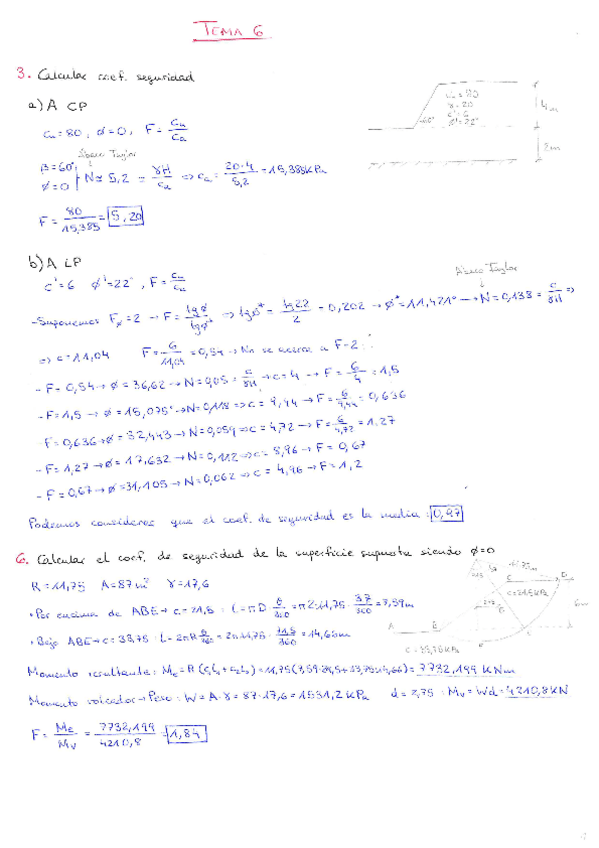 TEMA 6
3. Calcular coef. seguridad
a) A CP
Cu = 80, φ = 0, F = Cu/Ca
Cu = 80
γ = 20
c' = 6
φ' = 22°
60°
4m
2m
Ábaco Taylor
β = 60°
φ = 0
N ≈ 5,2 = γH/Ca => Ca = 20·4/5,2 = 15,385 KPa
F = 80/15,385 = 5,20
b) A LP
c' = 6 φ' = 22°, F = Cu/Ca
Ábaco Taylor
- Suponemos Fφ = 2 → F = tgφ/tgφ* => tgφ* = tg22/2 = 0,202 → φ* = 11,421° → N = 0,138 = c/γH =>
=> c = 11,04 F = 6/11,04 = 0,54 → No se acerca a F = 2
- F = 0,54 → φ = 36,62 → N = 0,05 = c/γH → c = 4 → F = 6/4 = 1,5
- F = 1,5 → φ = 15,075° → N = 0,118 => c = 9,44 → F = 6/9,44 = 0,636
F = 0,636 → φ = 32,443 → N = 0,059 → c = 4,72 → F = 6/4,72 = 1,27
- F = 1,27 → φ = 17,632 → N = 0,112 → c = 8,96 → F = 0,67
- F = 0,67 → φ = 31,105 → N = 0,062 → c = 4,96 → F = 1,2
Podemos considerar que el coef. de seguridad es la media: 0,97
6. Calcular el coef. de seguridad de la superficie supuesta siendo φ = 0
R = 11,75 A = 87 m² γ = 17,6
· Por encima de ABE → c = 21,5 : L = πD · θ/360 = π2·11,75 · 37/360 = 7,59m
· Bajo ABE → c = 33,75 : L = 2πR θ/360 = 2π11,75 · 71,5/360 = 14,66m
C
D
A
B
E
6m
Momento resultante: Me = R (c₁L₁ + c₂L₂) = 7732,199 KNm
Momento volcador → Peso: W = A·γ = 87·17,6 = 1531,2 KPa d = 2,75 : Mv = Wd = 4210,8 KN
F = Me/Mv = 7732,199/4210,8 = 1,84